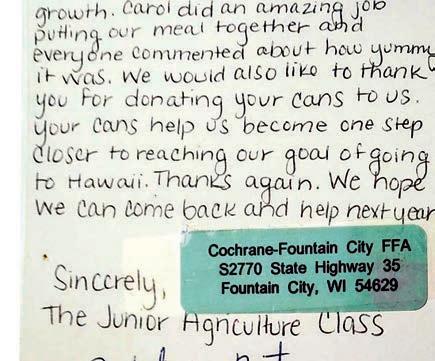 growth. Carol did an amazing job
putting our meal together and
everyone commented about how yummy
it was. We would also like to thank
you for donating your cans to us.
your cans help us become one step
closer to reaching our goal of going
to Hawaii. Thanks again. We hope
we can come back and help next year
Cochrane-Fountain City FFA
S2770 State Highway 35
Fountain City, WI 54629
Sincerely,
The Junior Agriculture Class